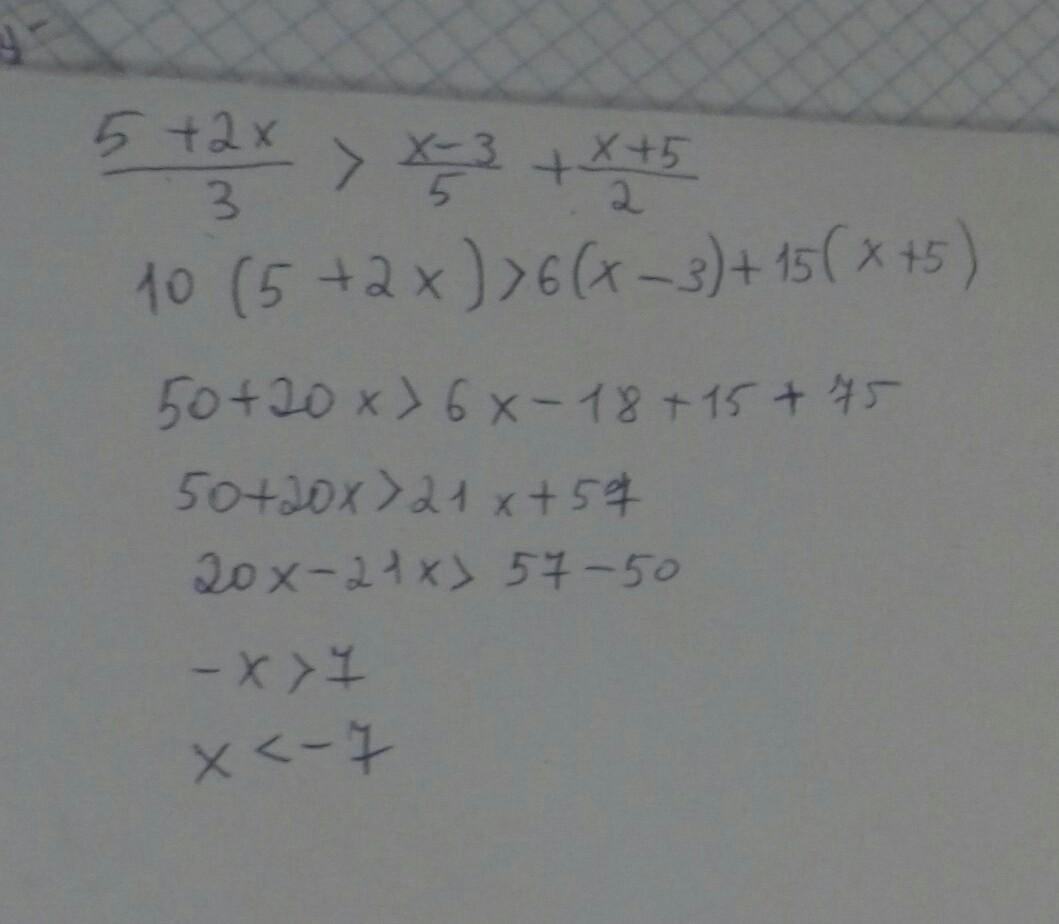 5 + 2x / 3 > x - 3 / 5 + x + 5 / 2
10 (5 + 2x) > 6(x - 3) + 15(x + 5)
50 + 20x > 6x - 18 + 15 + 75
50 + 20x > 21x + 57
20x - 21x > 57 - 50
-x > 7
x < -7